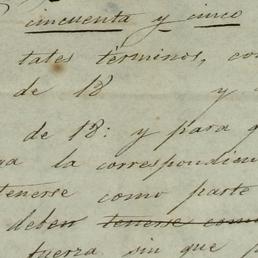 cincuenta y cinco
tales términos, co
de 18 y
de 18: y para q
va la correspondien
tenerse como parte
deben tenerse com
fuerza sin que p